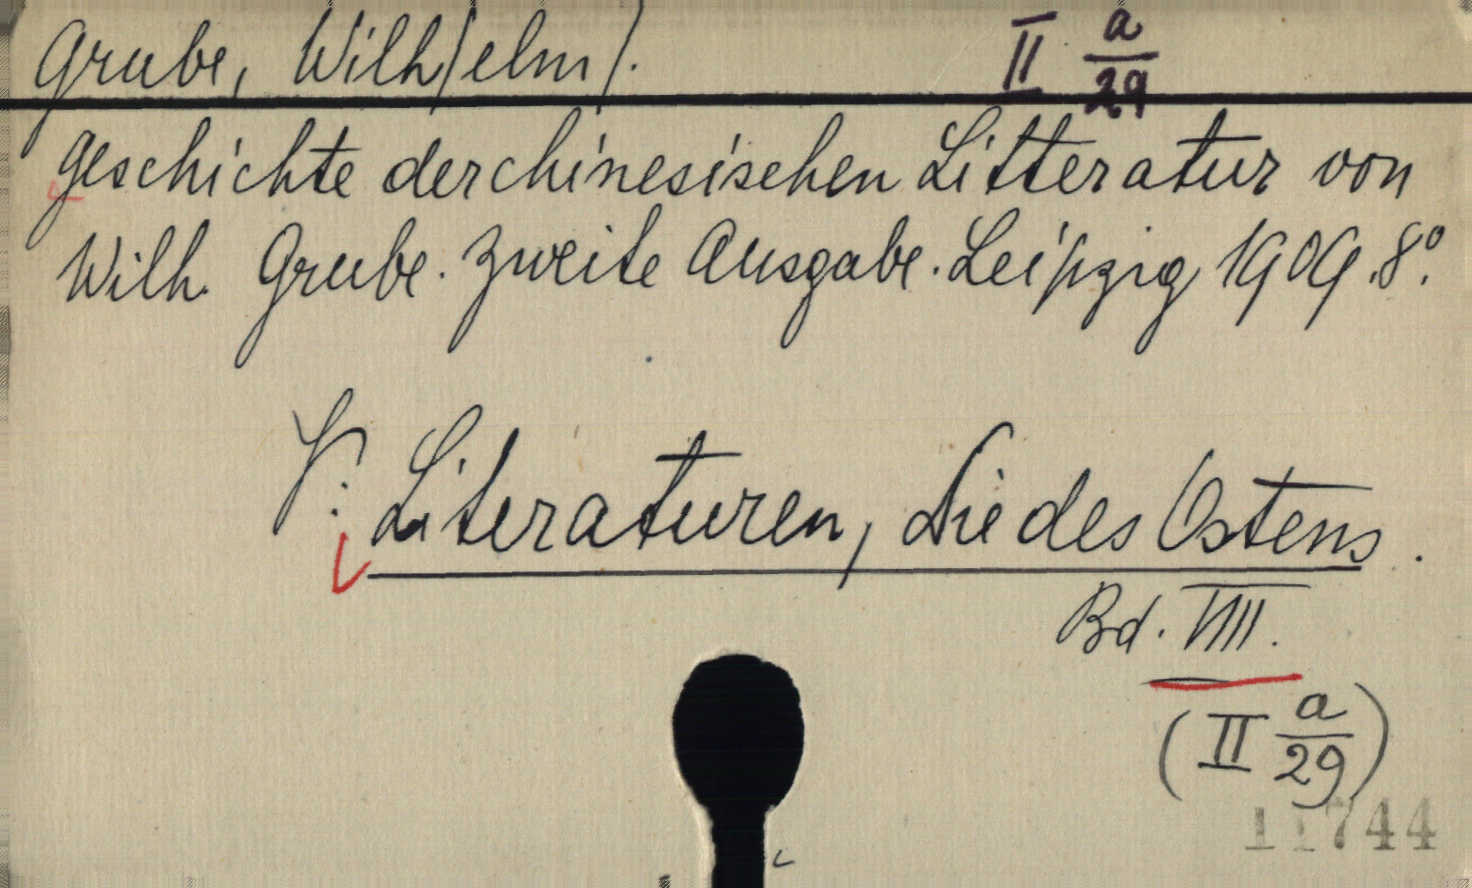 Grube, Wilh/elm/. II a/29
Geschichte der chinesischen Litteratur von
Wilh. Grube. Zweite Ausgabe. Leipzig 1909. 8°.
V: Literaturen, Die des Ostens.
Bd. VIII.
(II a/29)
11744